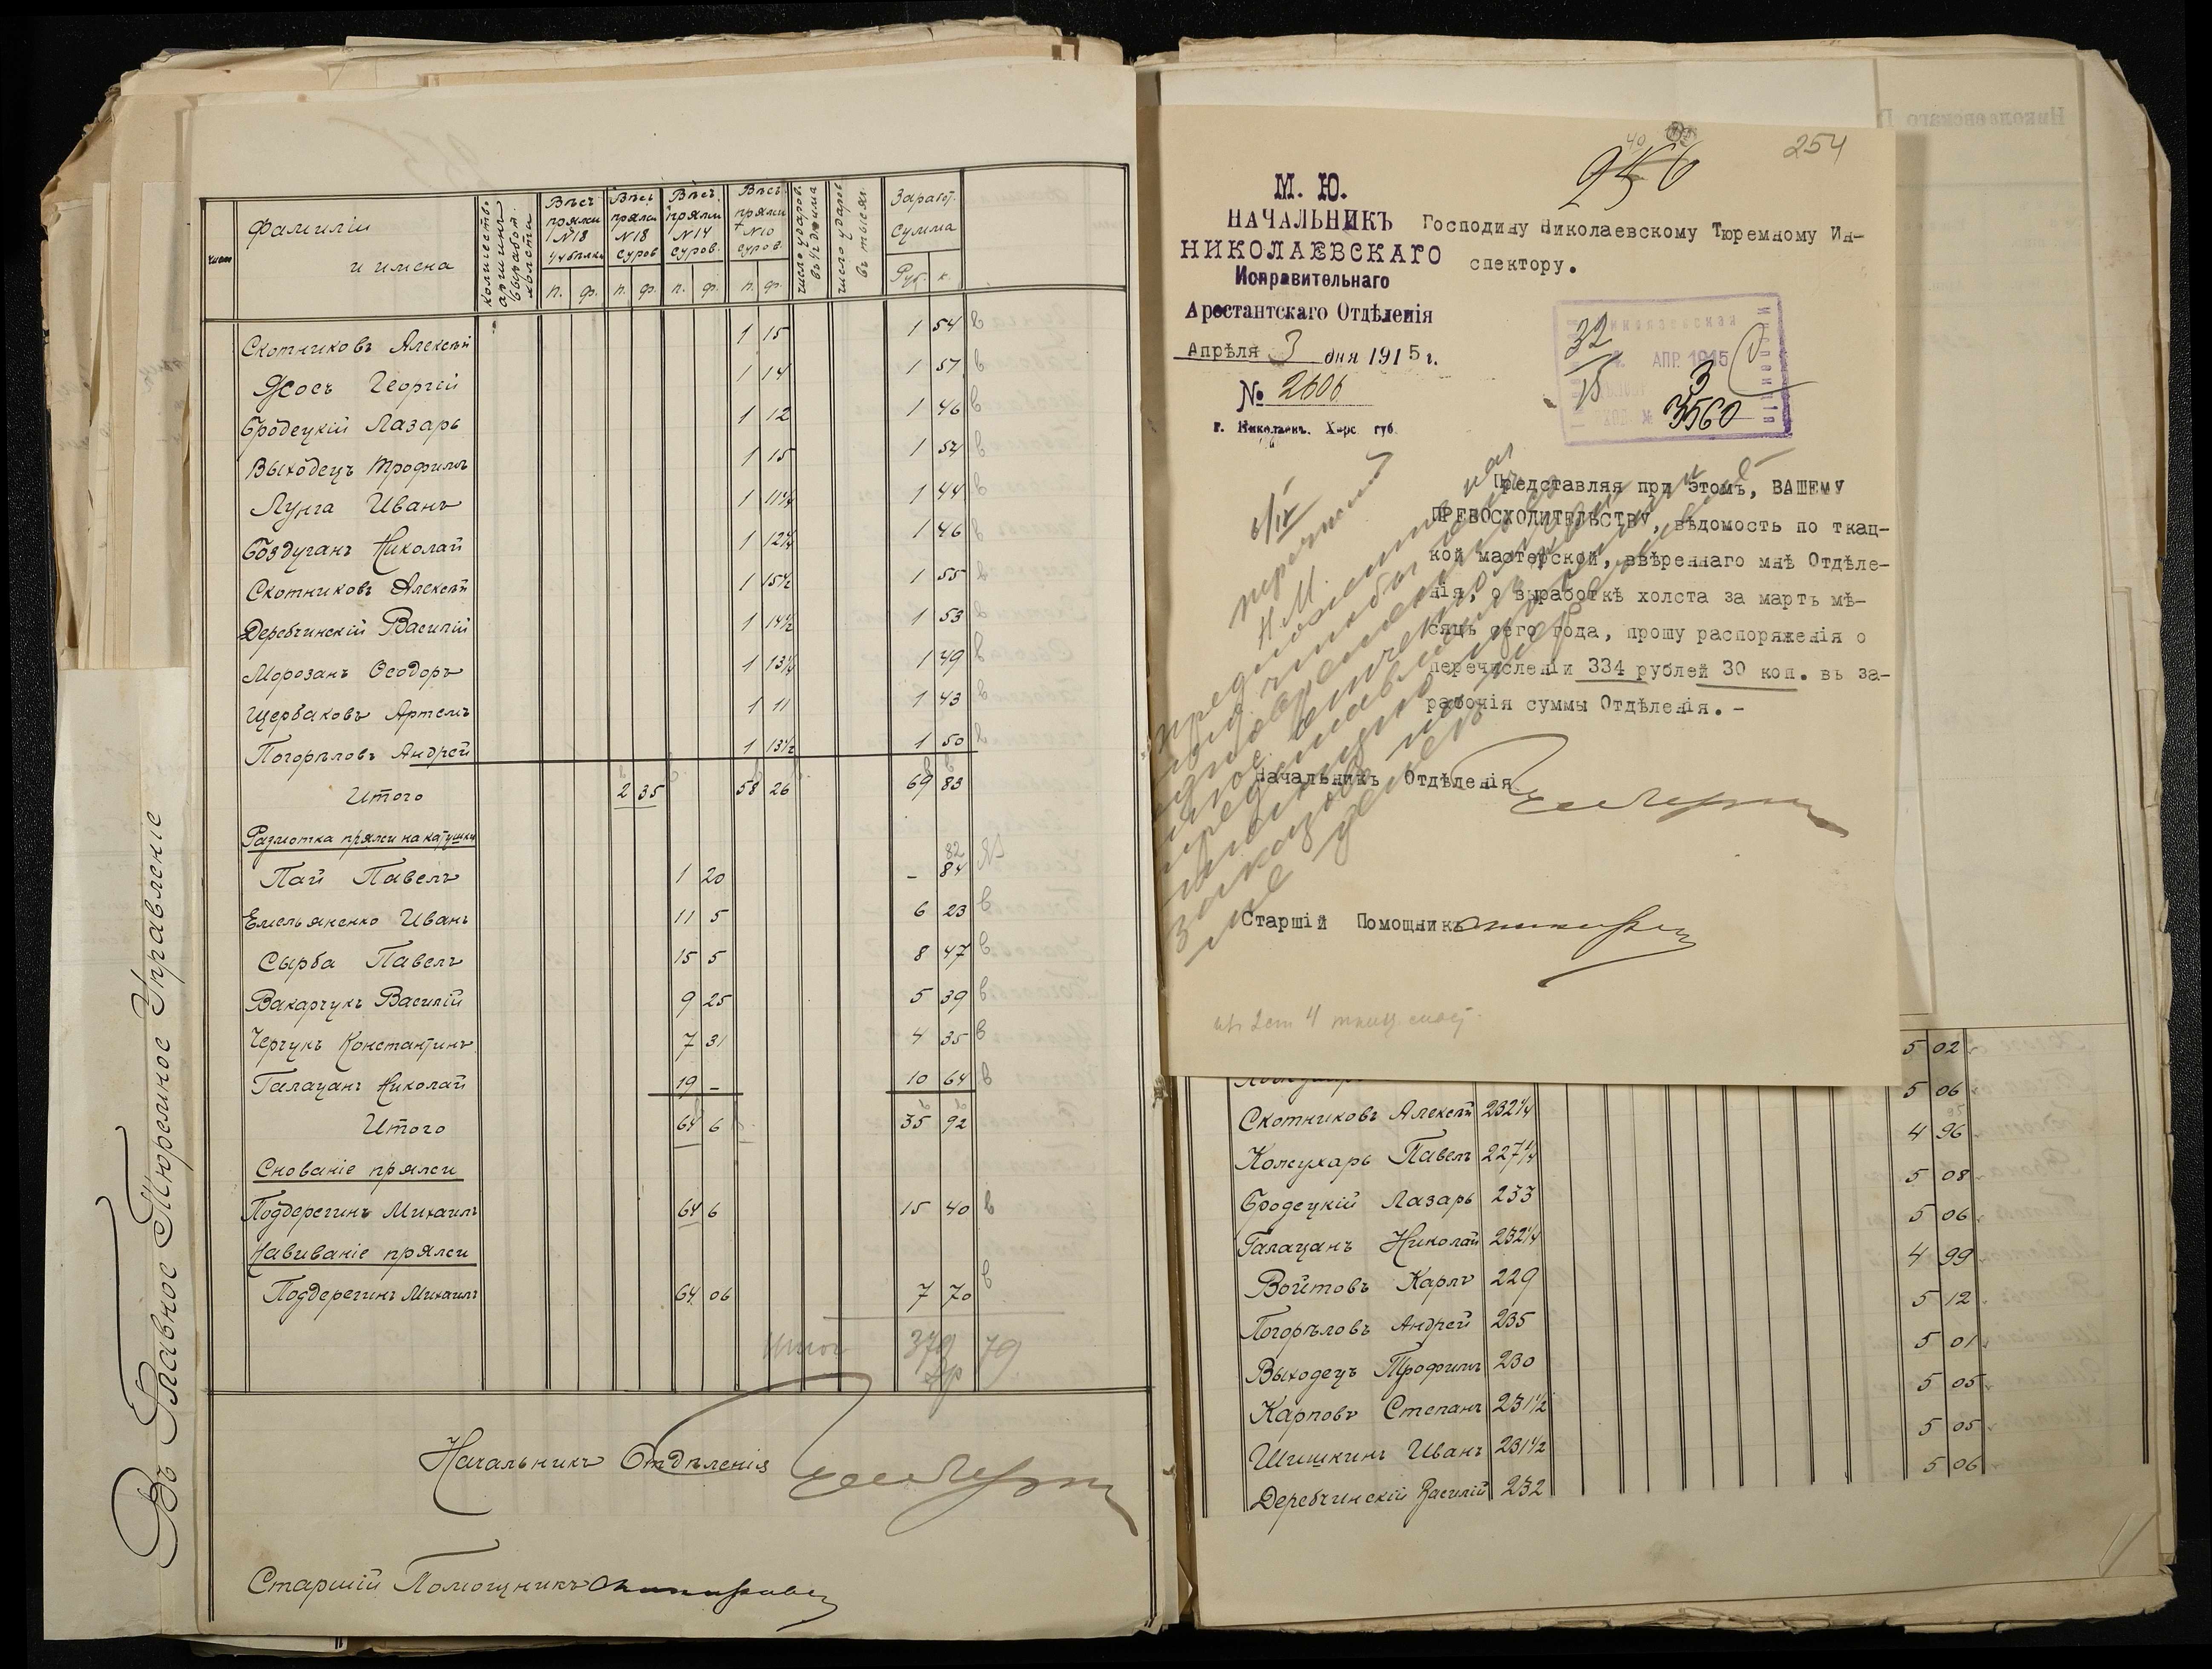 Въ Главное Тюремное Управленіе
число
Фамиліи
и имена
количество аршинъ выработ. холста
Вѣсъ пряжи №18 ½ бѣлки
Вѣсъ пряжи №18 суров
Вѣсъ пряжи №14 суров.
Вѣсъ пряжи №10 суров.
число ударовъ въ ¼ дюйма
число ударов въ тысяч.
Заработ. сумма
п. ф. п. ф. п. ф. п. ф. Руб. к.
Скотниковъ Алексѣй 1 15 1 54 в
Жосъ Георгій 1 14 1 51 в
Бродецкій Лазарь 1 12 1 46 в
Выходецъ Трофимъ 1 15 1 54 в
Лунга Иванъ 1 11¼ 1 44 в
Боздуганъ Николай 1 12¼ 1 46 в
Скотниковъ Алексѣй 1 15½ 1 55 в
Деребчинскій Василій 1 14½ 1 53 в
Морозанъ Ѳеодоръ 1 13¼ 1 49 в
Щербаковъ Артемъ 1 11 1 43 в
Погорѣловъ Андрей 1 13½ 1 50 в
Итого 2 35 58 26 69 83
Размотка пряжи на катушки
82
Пай Павелъ 1 20 – 84
Емельяненко Иванъ 11 5 6 23 в
Сырба Павелъ 15 5 8 47 в
Вакарчукъ Василій 9 25 5 39 в
Черчукъ Константинъ 7 31 4 35 в
Галацанъ Николай 19 – 10 64 в
Итого 64 6 35 92
Снованіе пряжи
Поддерегинъ Михаилъ 64 6 15 40 в
Навиваніе пряжи
Поддерегинъ Михаилъ 64 06 7 70 в
Итого 379 79
Начальникъ Отдѣленія
Старшій Помощникъ
40
956
254
М. Ю.
НАЧАЛЬНИКЪ
НИКОЛАЕВСКАГО
Исправительнаго
Арестантскаго Отдѣленія
Апрѣля 3 дня 1915 г.
№ 2606
г. Николаевъ. Херс. губ.
Господину Николаевскому Тюремному Ин-
спектору.
32
15
АПР. 1915
3
ВХОД. № 3560
6/IV
Представляя при этомъ, ВАШЕМУ
ПРЕВОСХОДИТЕЛЬСТВУ, вѣдомость по ткац-
кой мастерской, ввѣреннаго мнѣ Отдѣле-
нія, о выработкѣ холста за мартъ мѣ-
сяцъ сего года, прошу распоряженія о
перечисленіи 334 рублей 30 коп. въ за-
рабочія суммы Отдѣленія.-
Начальникъ Отдѣленія
Старшій Помощникъ
5 02
5 06
Скотниковъ Алексѣй 232¼ 4 96
Кожухарь Павелъ 227¼ 5 08
Бродецкій Лазарь 233 5 06
Галацанъ Николай 232¼ 4 99
Войтовъ Карлъ 229 5 12
Погорѣловъ Андрей 235 5 01
Выходецъ Трофимъ 230 5 05
Карповъ Степанъ 231½ 5 05
Шишкинъ Иванъ 231½ 5 06
Деребчинскій Василій 232